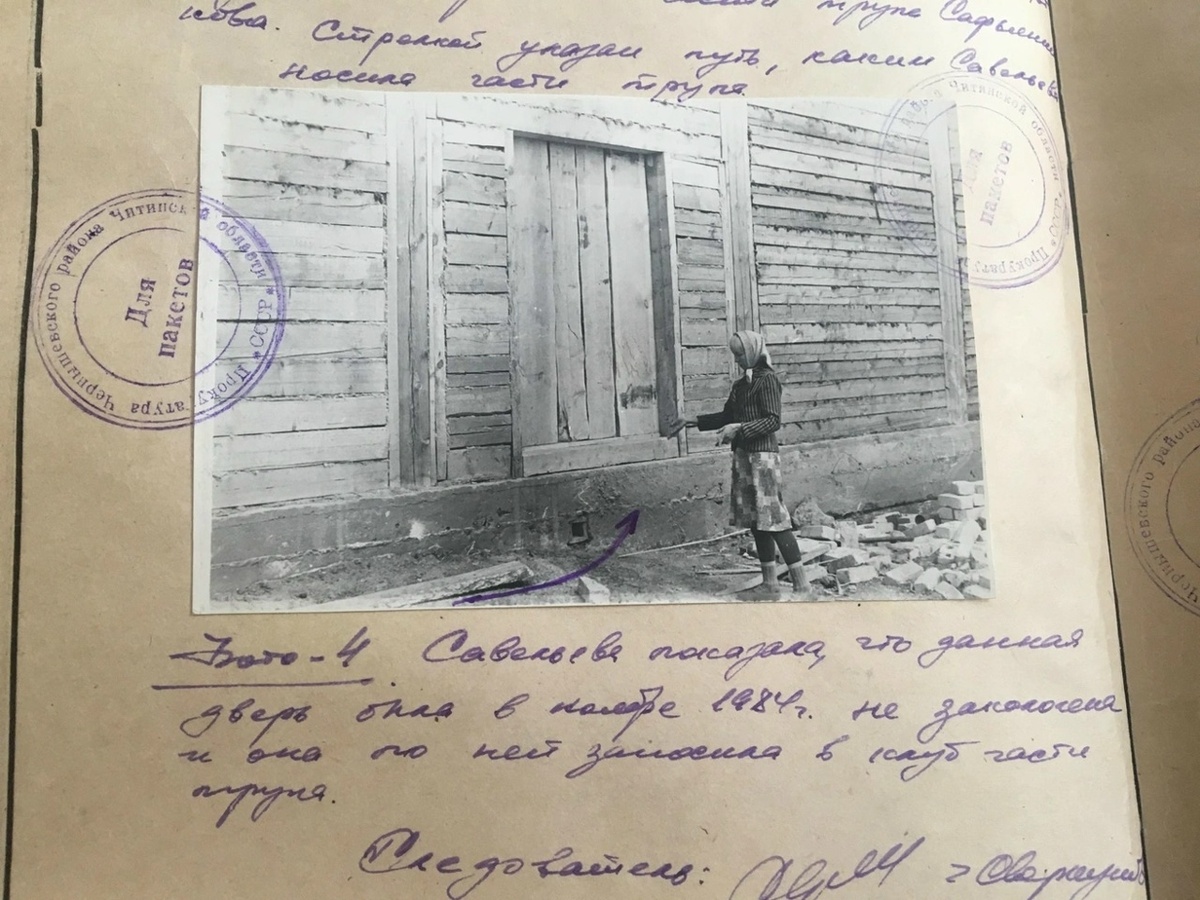 трупа
кова. Стрелкой указан путь, каким Савельева
носила части трупа
Прокуратура Чернышевского района Читинской области *СССР*
Для
пакетов
Прокурату района Читинской области *СССР*
Для
пакетов
Чернышевского района
Фото-4. Савельева показала, что данная
дверь была в ноябре 1984г. не заколочена
и она по ней заносила в клуб части
трупа.
Следователь: